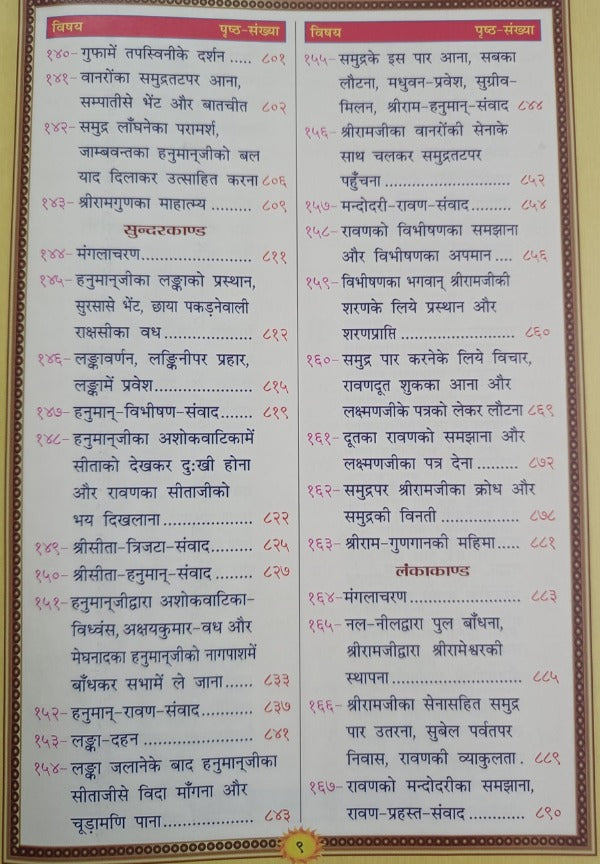 विषय पृष्ठ-संख्या
१४०- गुफामें तपस्विनीके दर्शन ..... ८०१
१४१- वानरोंका समुद्रतटपर आना,
सम्पातीसे भेंट और बातचीत ८०२
१४२- समुद्र लाँघनेका परामर्श,
जाम्बवन्तका हनुमान्‌जीको बल
याद दिलाकर उत्साहित करना ८०६
१४३- श्रीरामगुणका माहात्म्य ......... ८०९
सुन्दरकाण्ड
१४४- मंगलाचरण........................ ८११
१४५- हनुमान्‌जीका लङ्काको प्रस्थान,
सुरसासे भेंट, छाया पकड़नेवाली
राक्षसीका वध .................... ८१२
१४६- लङ्कावर्णन, लङ्किनीपर प्रहार,
लङ्कामें प्रवेश...................... ८१५
१४७- हनुमान्-विभीषण-संवाद....... ८१९
१४८- हनुमान्‌जीका अशोकवाटिकामें
सीताको देखकर दुःखी होना
और रावणका सीताजीको
भय दिखलाना.................... ८२२
१४९- श्रीसीता-त्रिजटा-संवाद......... ८२५
१५०- श्रीसीता-हनुमान्-संवाद ........ ८२७
१५१- हनुमान्‌जीद्वारा अशोकवाटिका-
विध्वंस, अक्षयकुमार-वध और
मेघनादका हनुमान्‌जीको नागपाशमें
बाँधकर सभामें ले जाना...... ८३३
१५२- हनुमान्-रावण-संवाद........... ८३७
१५३- लङ्का-दहन ....................... ८४१
१५४- लङ्का जलानेके बाद हनुमान्‌जीका
सीताजीसे विदा माँगना और
चूड़ामणि पाना.................... ८४३
विषय पृष्ठ-संख्या
१५५- समुद्रके इस पार आना, सबका
लौटना, मधुवन-प्रवेश, सुग्रीव-
मिलन, श्रीराम-हनुमान्-संवाद ८४४
१५६- श्रीरामजीका वानरोंकी सेनाके
साथ चलकर समुद्रतटपर
पहुँचना ........................... ८५२
१५७- मन्दोदरी-रावण-संवाद......... ८५४
१५८- रावणको विभीषणका समझाना
और विभीषणका अपमान .... ८५६
१५९- विभीषणका भगवान् श्रीरामजीकी
शरणके लिये प्रस्थान और
शरणप्राप्ति ........................ ८६०
१६०- समुद्र पार करनेके लिये विचार,
रावणदूत शुकका आना और
लक्ष्मणजीके पत्रको लेकर लौटना ८६९
१६१- दूतका रावणको समझाना और
लक्ष्मणजीका पत्र देना ......... ८७२
१६२- समुद्रपर श्रीरामजीका क्रोध और
समुद्रकी विनती .................. ८७८
१६३- श्रीराम-गुणगानकी महिमा..... ८८१
लंकाकाण्ड
१६४- मंगलाचरण........................ ८८३
१६५- नल-नीलद्वारा पुल बाँधना,
श्रीरामजीद्वारा श्रीरामेश्वरकी
स्थापना ........................... ८८५
१६६- श्रीरामजीका सेनासहित समुद्र
पार उतरना, सुबेल पर्वतपर
निवास, रावणकी व्याकुलता . ८८९
१६७- रावणको मन्दोदरीका समझाना,
रावण-प्रहस्त-संवाद ............ ८९०
९